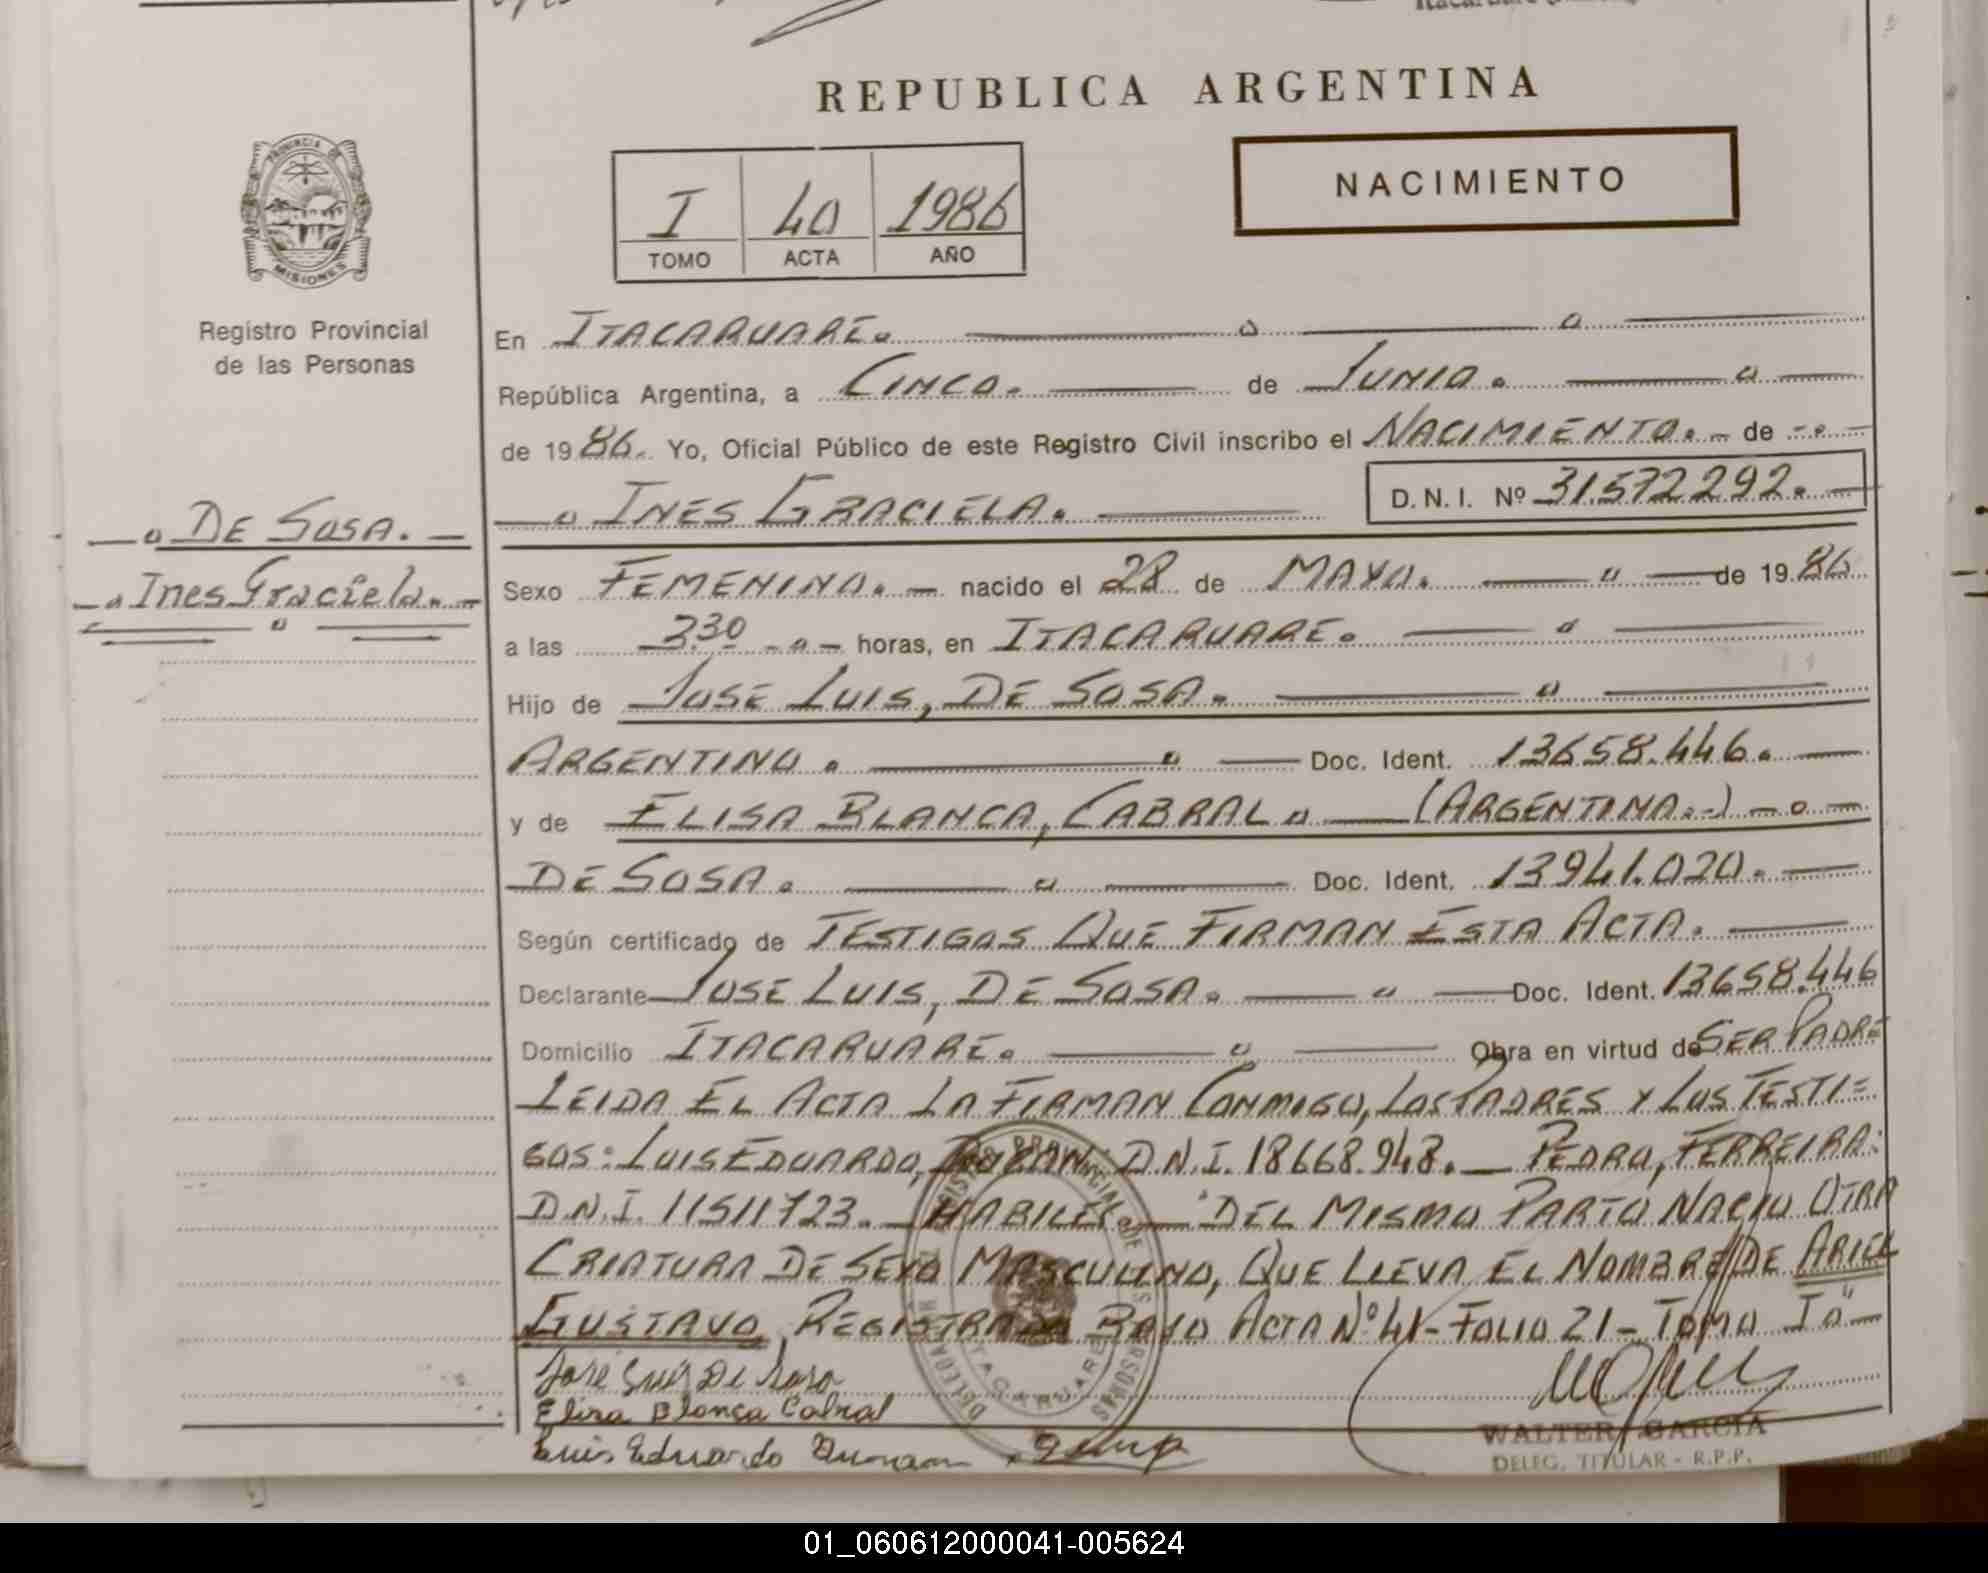 REPUBLICA ARGENTINA
PROVINCIA DE
MISIONES
Registro Provincial
de las Personas
I 40 1986
TOMO ACTA AÑO
NACIMIENTO
En ITACARUARE.
República Argentina, a CINCO. de JUNIO.
de 1986. Yo, Oficial Público de este Registro Civil inscribo el NACIMIENTO. de
INES GRACIELA. D.N.I. Nº 31.572292.
DE SOSA.
Ines Graciela.
Sexo FEMENINO. nacido el 28 de MAYO. de 1986
a las 3.30 horas, en ITACARUARE.
Hijo de JOSE LUIS, DE SOSA.
ARGENTINO. Doc. Ident. 13658.446.
y de ELISA BLANCA, CABRAL (ARGENTINA.-)
DE SOSA. Doc. Ident. 13941.020.
Según certificado de TESTIGOS QUE FIRMAN ESTA ACTA.
Declarante JOSE LUIS, DE SOSA. Doc. Ident. 13658.446
Domicilio ITACARUARE. Obra en virtud de SER PADRE
LEIDA EL ACTA LA FIRMAN CONMIGO, LOS PADRES Y LOS TESTI=
GOS: LUIS EDUARDO, D.N.I. 18668.948. PEDRO, FERREIRA:
D.N.I. 11511723. HABILES. DEL MISMO PARTO NACIO OTRA
CRIATURA DE SEXO MASCULINO, QUE LLEVA EL NOMBRE DE ARIEL
GUSTAVO, REGISTRADA BAJO ACTA Nº 41- FOLIO 21- TOMO Iº
José Luis De Sosa
Elisa Blanca Cabral
Luis Eduardo
WALTER GARCIA
DELEG. TITULAR - R.P.P.
01_060612000041-005624